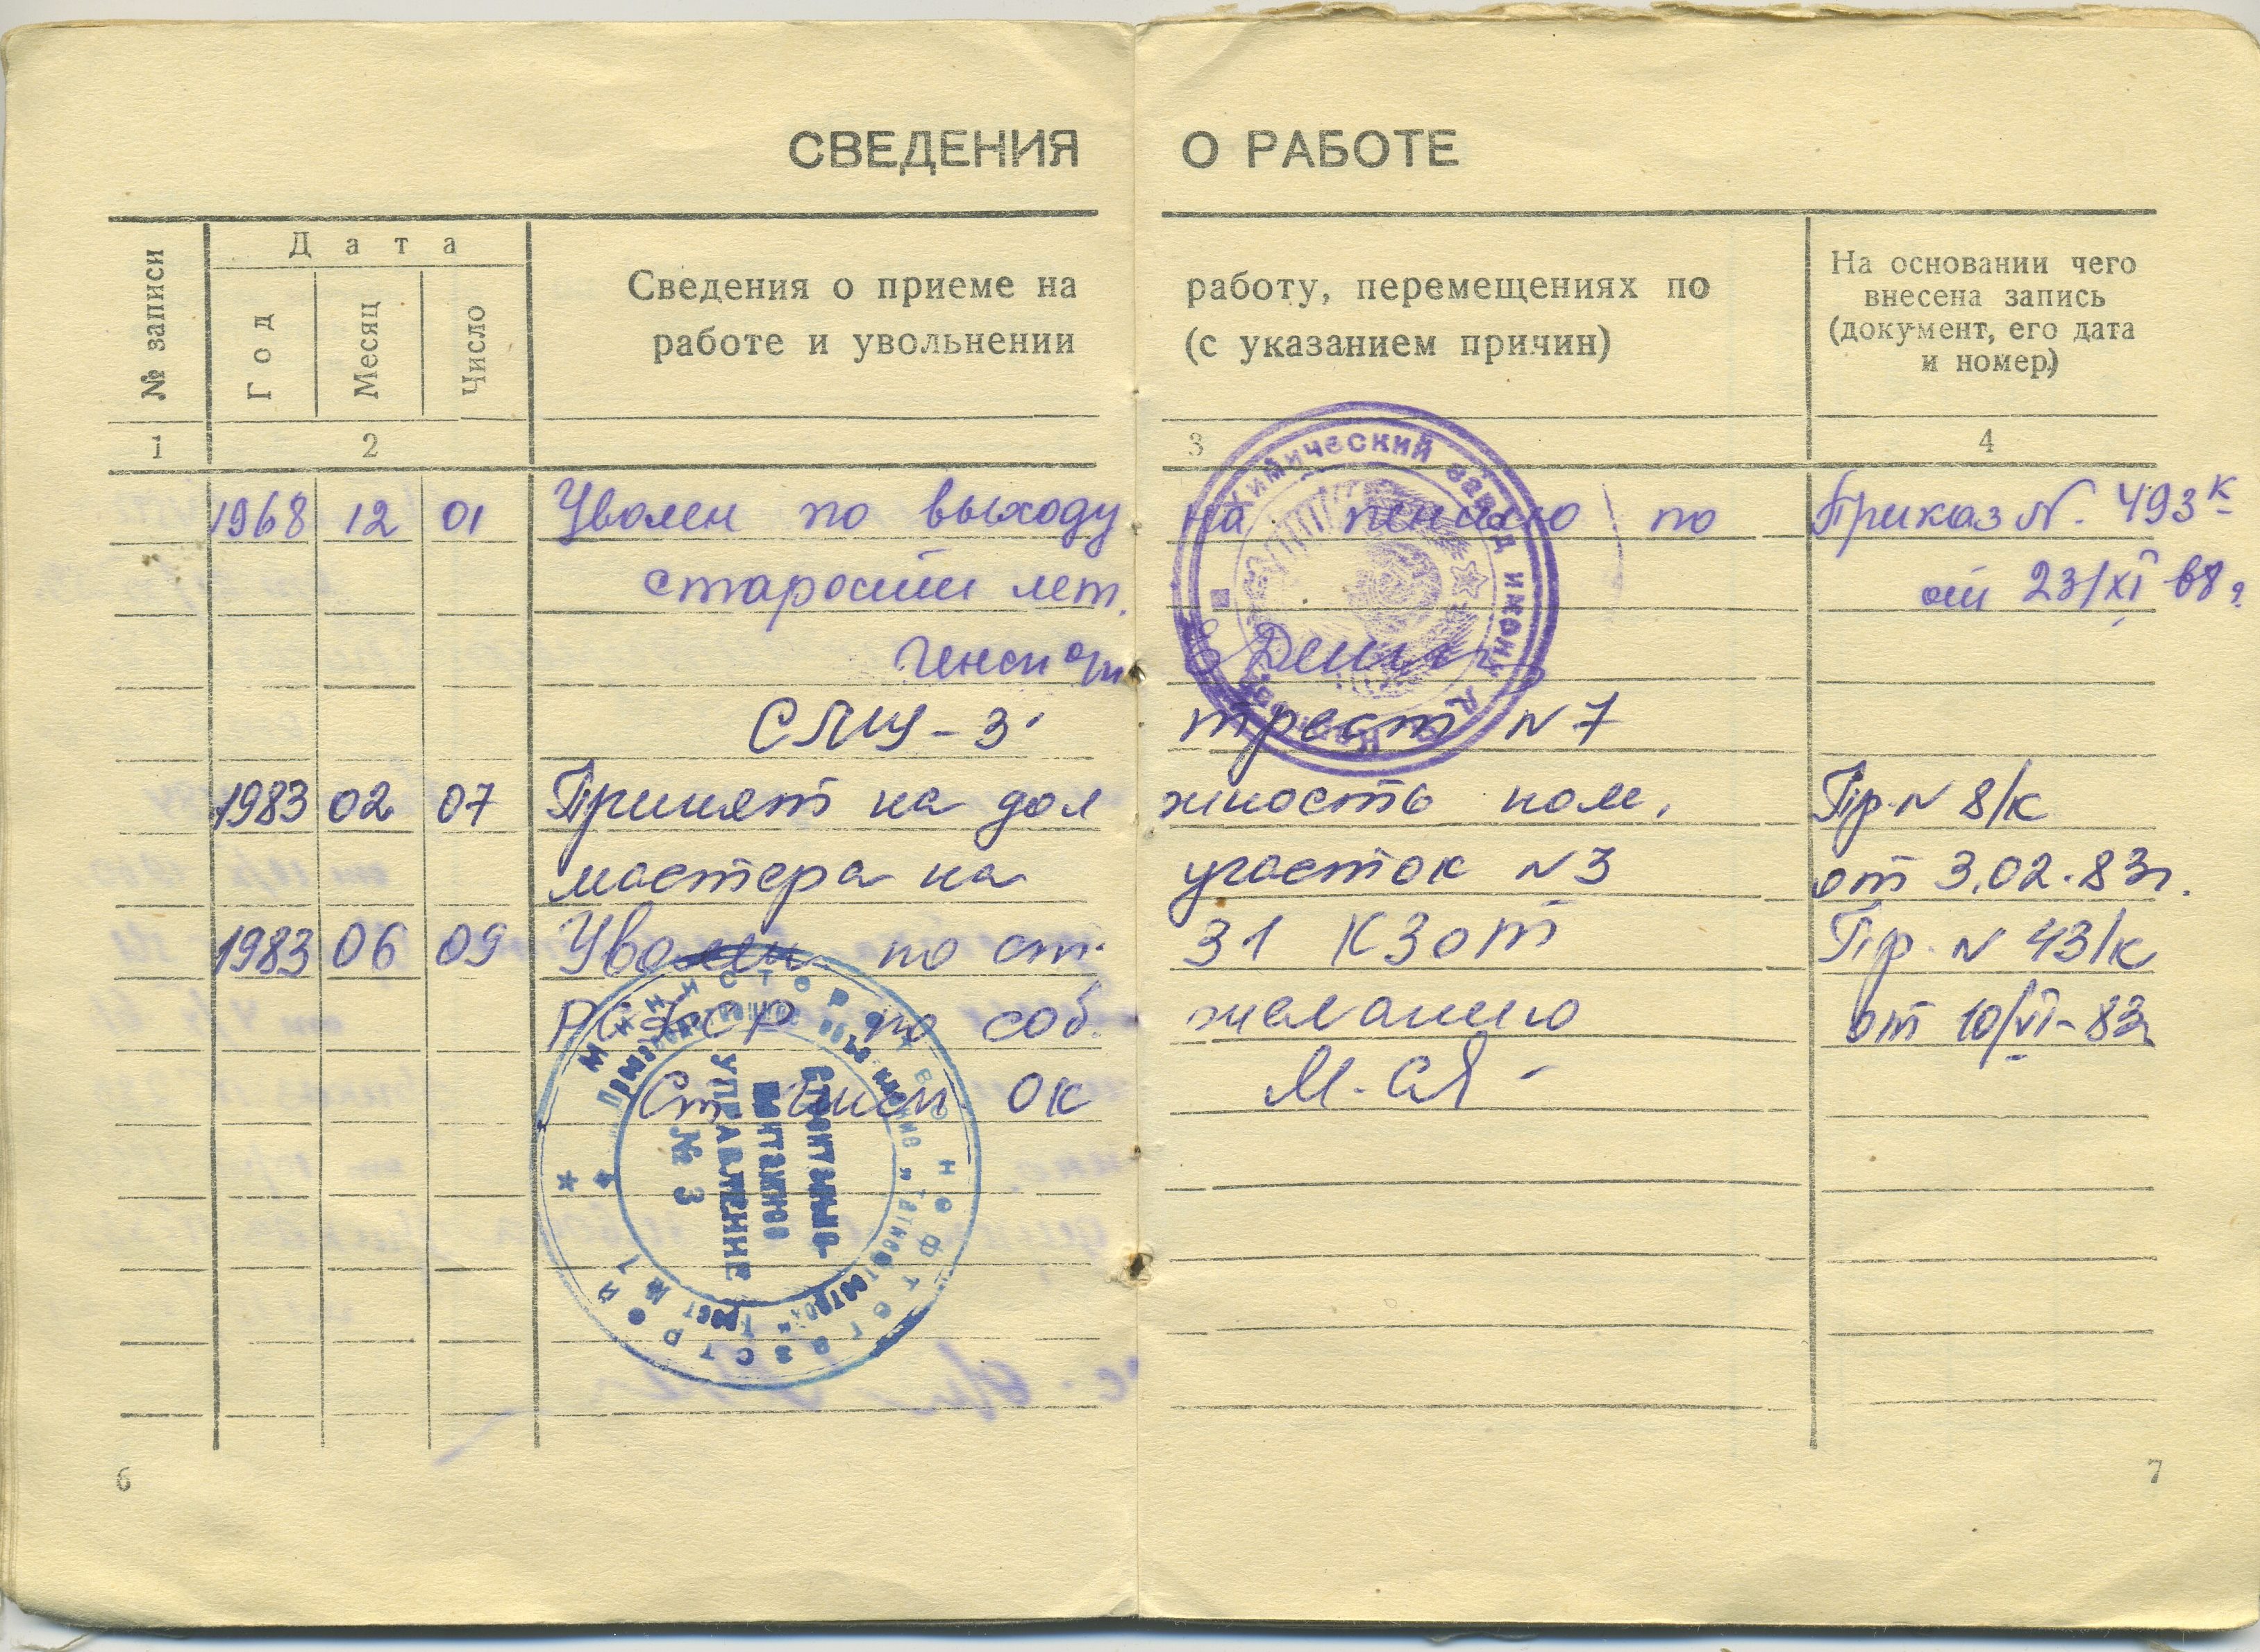 СВЕДЕНИЯ О РАБОТЕ
№ записи
Дата
Год
Месяц
Число
Сведения о приеме на работу, перемещениях по
работе и увольнении (с указанием причин)
На основании чего
внесена запись
(документ, его дата
и номер)
1 2 3 4
1968 12 01 Уволен по выходу на пенсию по Приказ N. 493к
старости лет. от 23/XI 68г.
СМУ-3 трест N7
1983 02 07 Принят на дол жность Пр. N 8/к
мастера на участок N3 от 3.02.83г.
1983 06 09 Уволен по ст. 31 КЗоТ Пр. N 43/к
РСФСР по соб. желанию от 10/VI-83г
Ст инсп ОК
Химический завод имени
Строительно-
монтажное
УПРАВЛЕНИЕ
№ 3
6
7